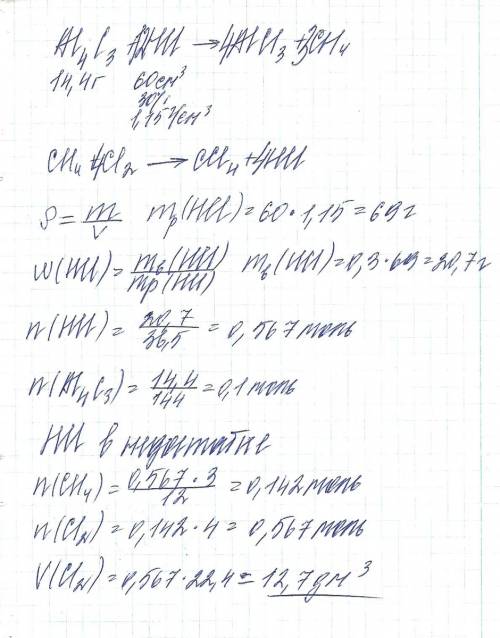 Al₄C₃ + 12HCl → 4AlCl₃ + 3CH₄
14,4г 60см³
30%
1,15г/см³
CH₄ + 4Cl₂ → CCl₄ + 4HCl
ρ = m/V mр(HCl) = 60 · 1,15 = 69г
w(HCl) = mв(HCl)/mр(HCl) mв(HCl) = 0,3 · 69 = 20,7г
n(HCl) = 20,7/36,5 = 0,567 моль
n(Al₄C₃) = 14,4/144 = 0,1 моль
HCl в недостатке
n(CH₄) = 0,567 · 3/12 = 0,142 моль
n(Cl₂) = 0,142 · 4 = 0,567 моль
V(Cl₂) = 0,567 · 22,4 = 12,7 дм³